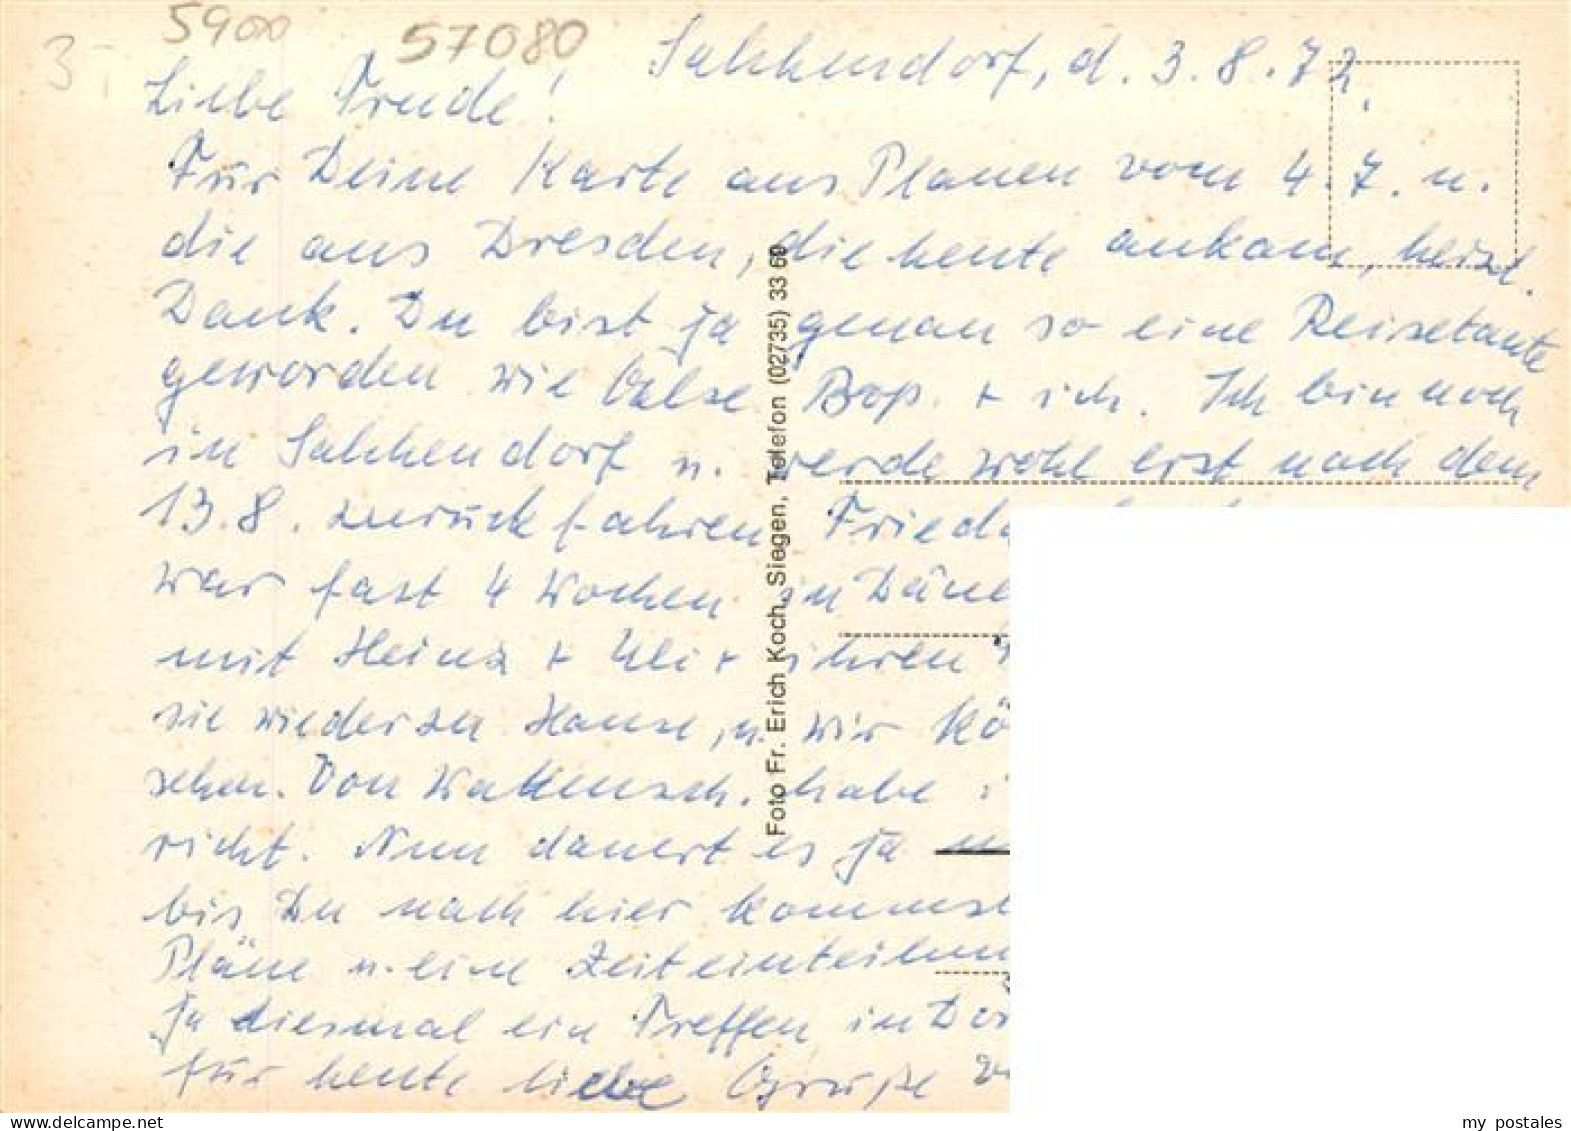 5900
57080
3,-
Salchendorf, d. 3.8.72.
Liebe Trude!
Für Deine Karte aus Plauen vom 4.7. u.
die aus Dresden, die heute ankam, herzl.
Dank. Du bist ja genau so eine Reisetante
geworden wie Bop. + ich. Ich bin noch
in Salchendorf u. werde wohl erst nach dem
13.8. zurückfahren.
war fast 4 Wochen in
mit Heinz + + ihren
sie wieder zu Hause, u. wir
sehen. Von habe
richt. Nun dauert es ja
bis Du nach hier kommst
Pläne u. eine Zeiteinteilun
ja diesmal ein Treffen in
für heute liebe Grüße
Foto Fr. Erich Koch, Siegen, Telefon (02735) 33 69
www.delcampe.net
my_postales